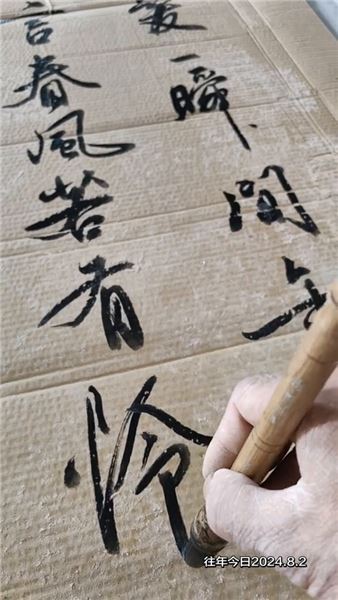 一瞬間
言春風若有怜
往年今日2024.8.2